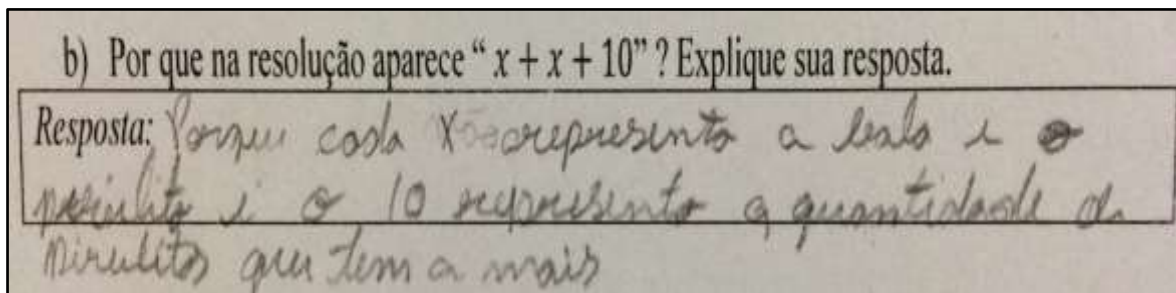 b) Por que na resolução aparece “ x + x + 10” ? Explique sua resposta.
Resposta: Porque cada x representa a bala e o
pirulito e o 10 representa a quantidade de
pirulitos que tem a mais